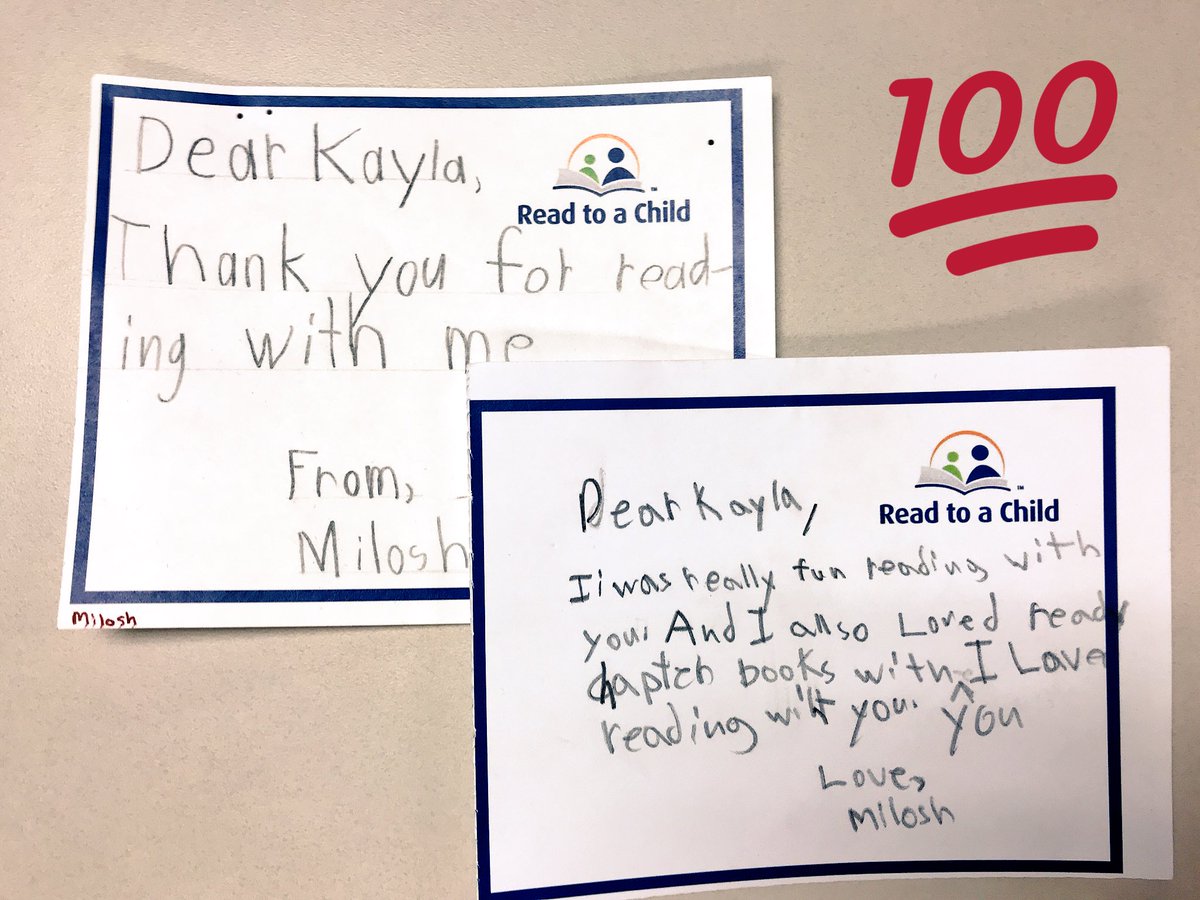 100
Dear Kayla,
Read to a Child™
Thank you for read-
ing with me
From,
Milosh
Milosh
Read to a Child™
Dear Kayla,
I i was really fun reading with
you. And I allso Loved ready
chaptch books with ^ I Love
reading with you. you
Love,
Milosh